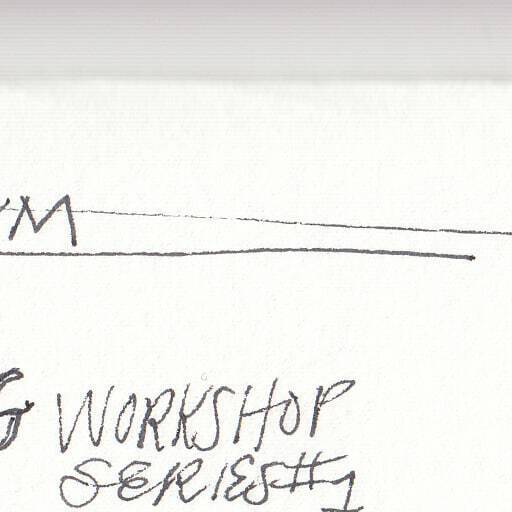 M
G WORKSHOP
SERIES #1